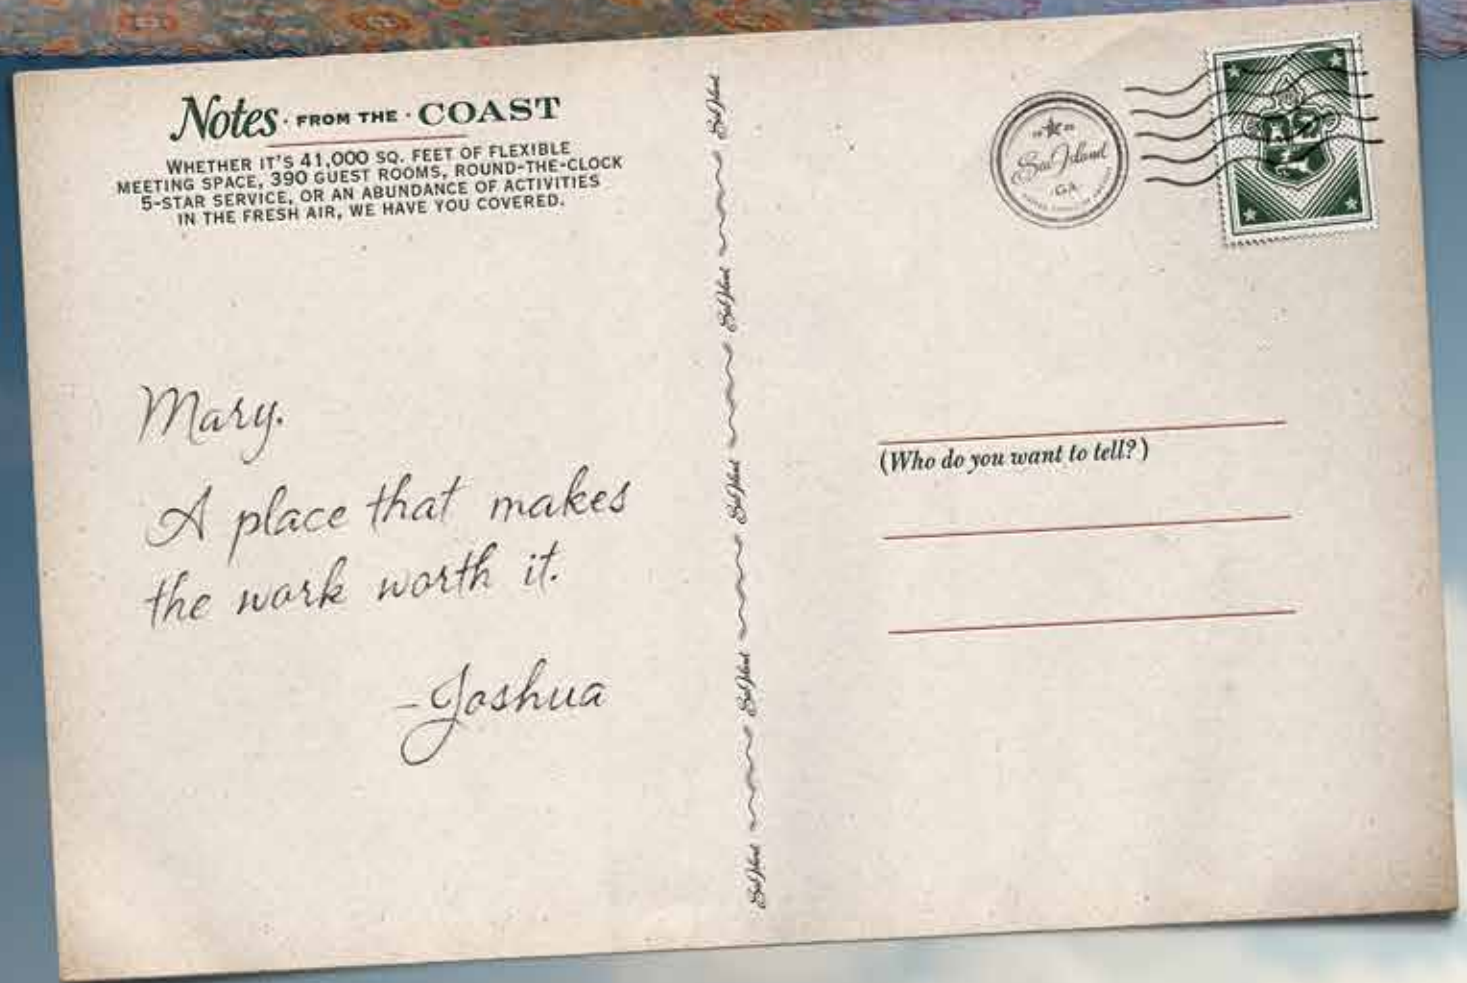 Notes · FROM THE · COAST
WHETHER IT'S 41,000 SQ. FEET OF FLEXIBLE
MEETING SPACE, 390 GUEST ROOMS, ROUND-THE-CLOCK
5-STAR SERVICE, OR AN ABUNDANCE OF ACTIVITIES
IN THE FRESH AIR, WE HAVE YOU COVERED.
Mary.
A place that makes
the work worth it.
-Joshua
Sea Island
Sea Island
Sea Island
Sea Island
Sea Island
Sea Island
GA
(Who do you want to tell?)